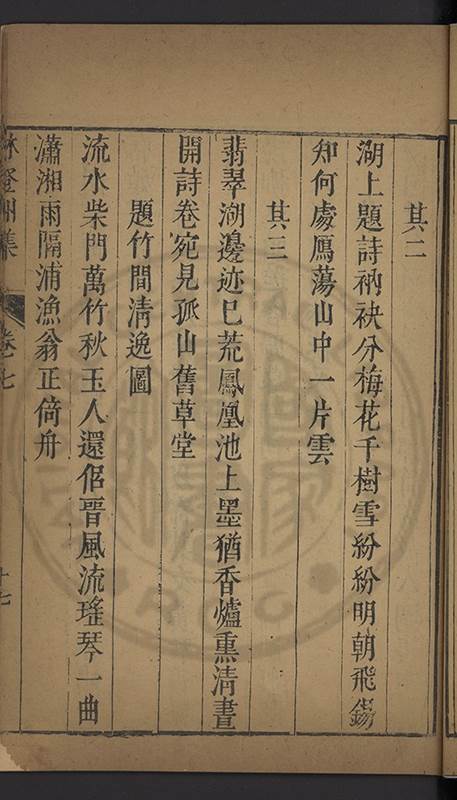 其二
湖上題詩衲袂分梅花千樹雪紛紛明朝飛錫
知何處鴈蕩山中一片雲
其三
翡翠湖邊迹已荒鳳凰池上墨猶香爐熏清晝
開詩卷宛見孤山舊草堂
題竹間清逸圖
流水柴門萬竹秋玉人還侶晉風流瑤琴一曲
瀟湘雨隔浦漁翁正倚舟
集
卷七
十七